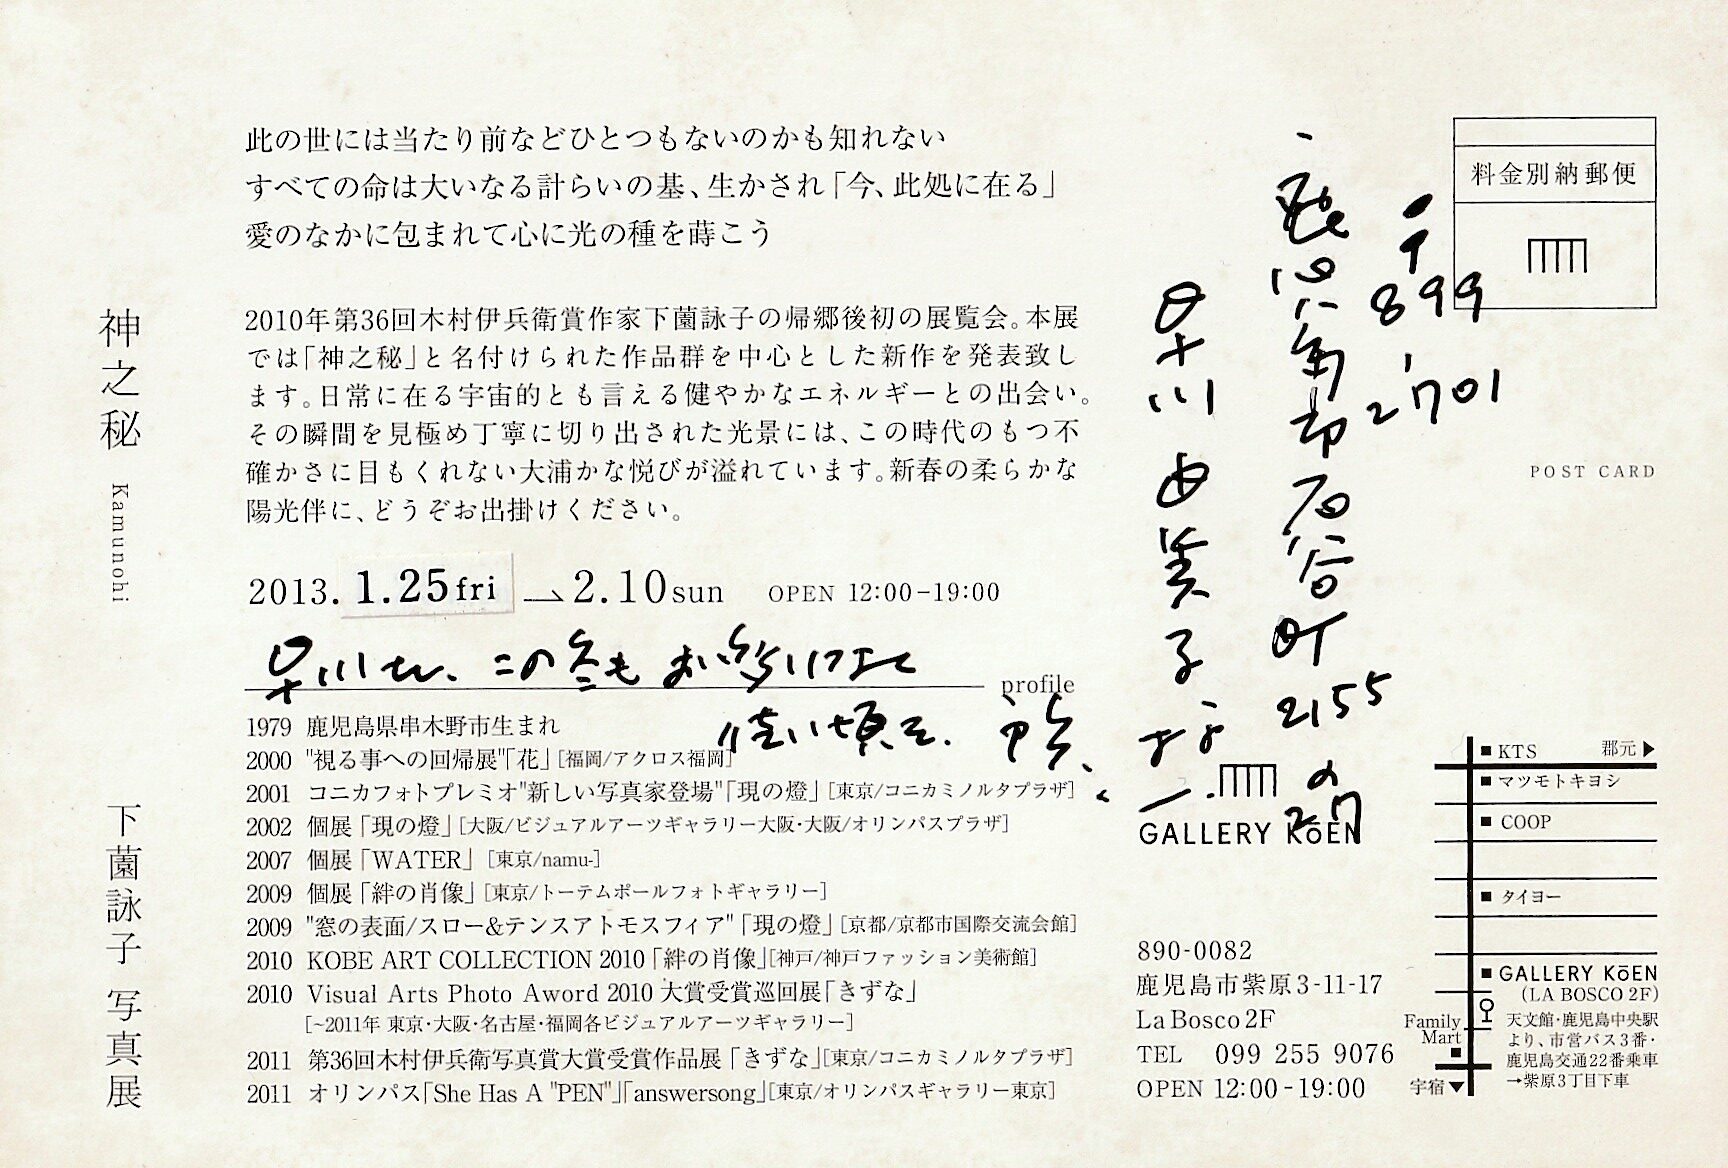 此の世には当たり前などひとつもないのかも知れない
すべての命は大いなる計らいの基、生かされ「今、此処に在る」
愛のなかに包まれて心に光の種を蒔こう
神之秘 Kamunohi
下薗詠子 写真展
2010年第36回木村伊兵衛賞作家下薗詠子の帰郷後初の展覧会。本展
では「神之秘」と名付けられた作品群を中心とした新作を発表致し
ます。日常に在る宇宙的とも言える健やかなエネルギーとの出会い。
その瞬間を見極め丁寧に切り出された光景には、この時代のもつ不
確かさに目もくれない大浦かな悦びが溢れています。新春の柔らかな
陽光伴に、どうぞお出掛けください。
2013. 1.25fri 2.10sun OPEN 12:00-19:00
この冬も
profile
1979 鹿児島県串木野市生まれ
2000 "視る事への回帰展"「花」[福岡/アクロス福岡]
2001 コニカフォトプレミオ"新しい写真家登場"「現の燈」[東京/コニカミノルタプラザ]
2002 個展「現の燈」[大阪/ビジュアルアーツギャラリー大阪・大阪/オリンパスプラザ]
2007 個展「WATER」[東京/namu-]
2009 個展「絆の肖像」[東京/トーテムポールフォトギャラリー]
2009 "窓の表面/スロー&テンスアトモスフィア"「現の燈」[京都/京都市国際交流会館]
2010 KOBE ART COLLECTION 2010「絆の肖像」[神戸/神戸ファッション美術館]
2010 Visual Arts Photo Aword 2010 大賞受賞巡回展「きずな」
[~2011年 東京・大阪・名古屋・福岡各ビジュアルアーツギャラリー]
2011 第36回木村伊兵衛写真賞大賞受賞作品展「きずな」[東京/コニカミノルタプラザ]
2011 オリンパス「She Has A "PEN"」「answersong」[東京/オリンパスギャラリー東京]
料金別納郵便
POST CARD
〒899-2701
鹿児島市石谷町2155の27
早川由美子
GALLERY KōEN
890-0082
鹿児島市紫原3-11-17
La Bosco 2F
TEL 099 255 9076
OPEN 12:00-19:00
KTS 郡元
マツモトキヨシ
COOP
タイヨー
GALLERY KōEN
(LA BOSCO 2F)
Family
Mart
宇宿
天文館・鹿児島中央駅
より、市営バス3番・
鹿児島交通22番乗車
→紫原3丁目下車